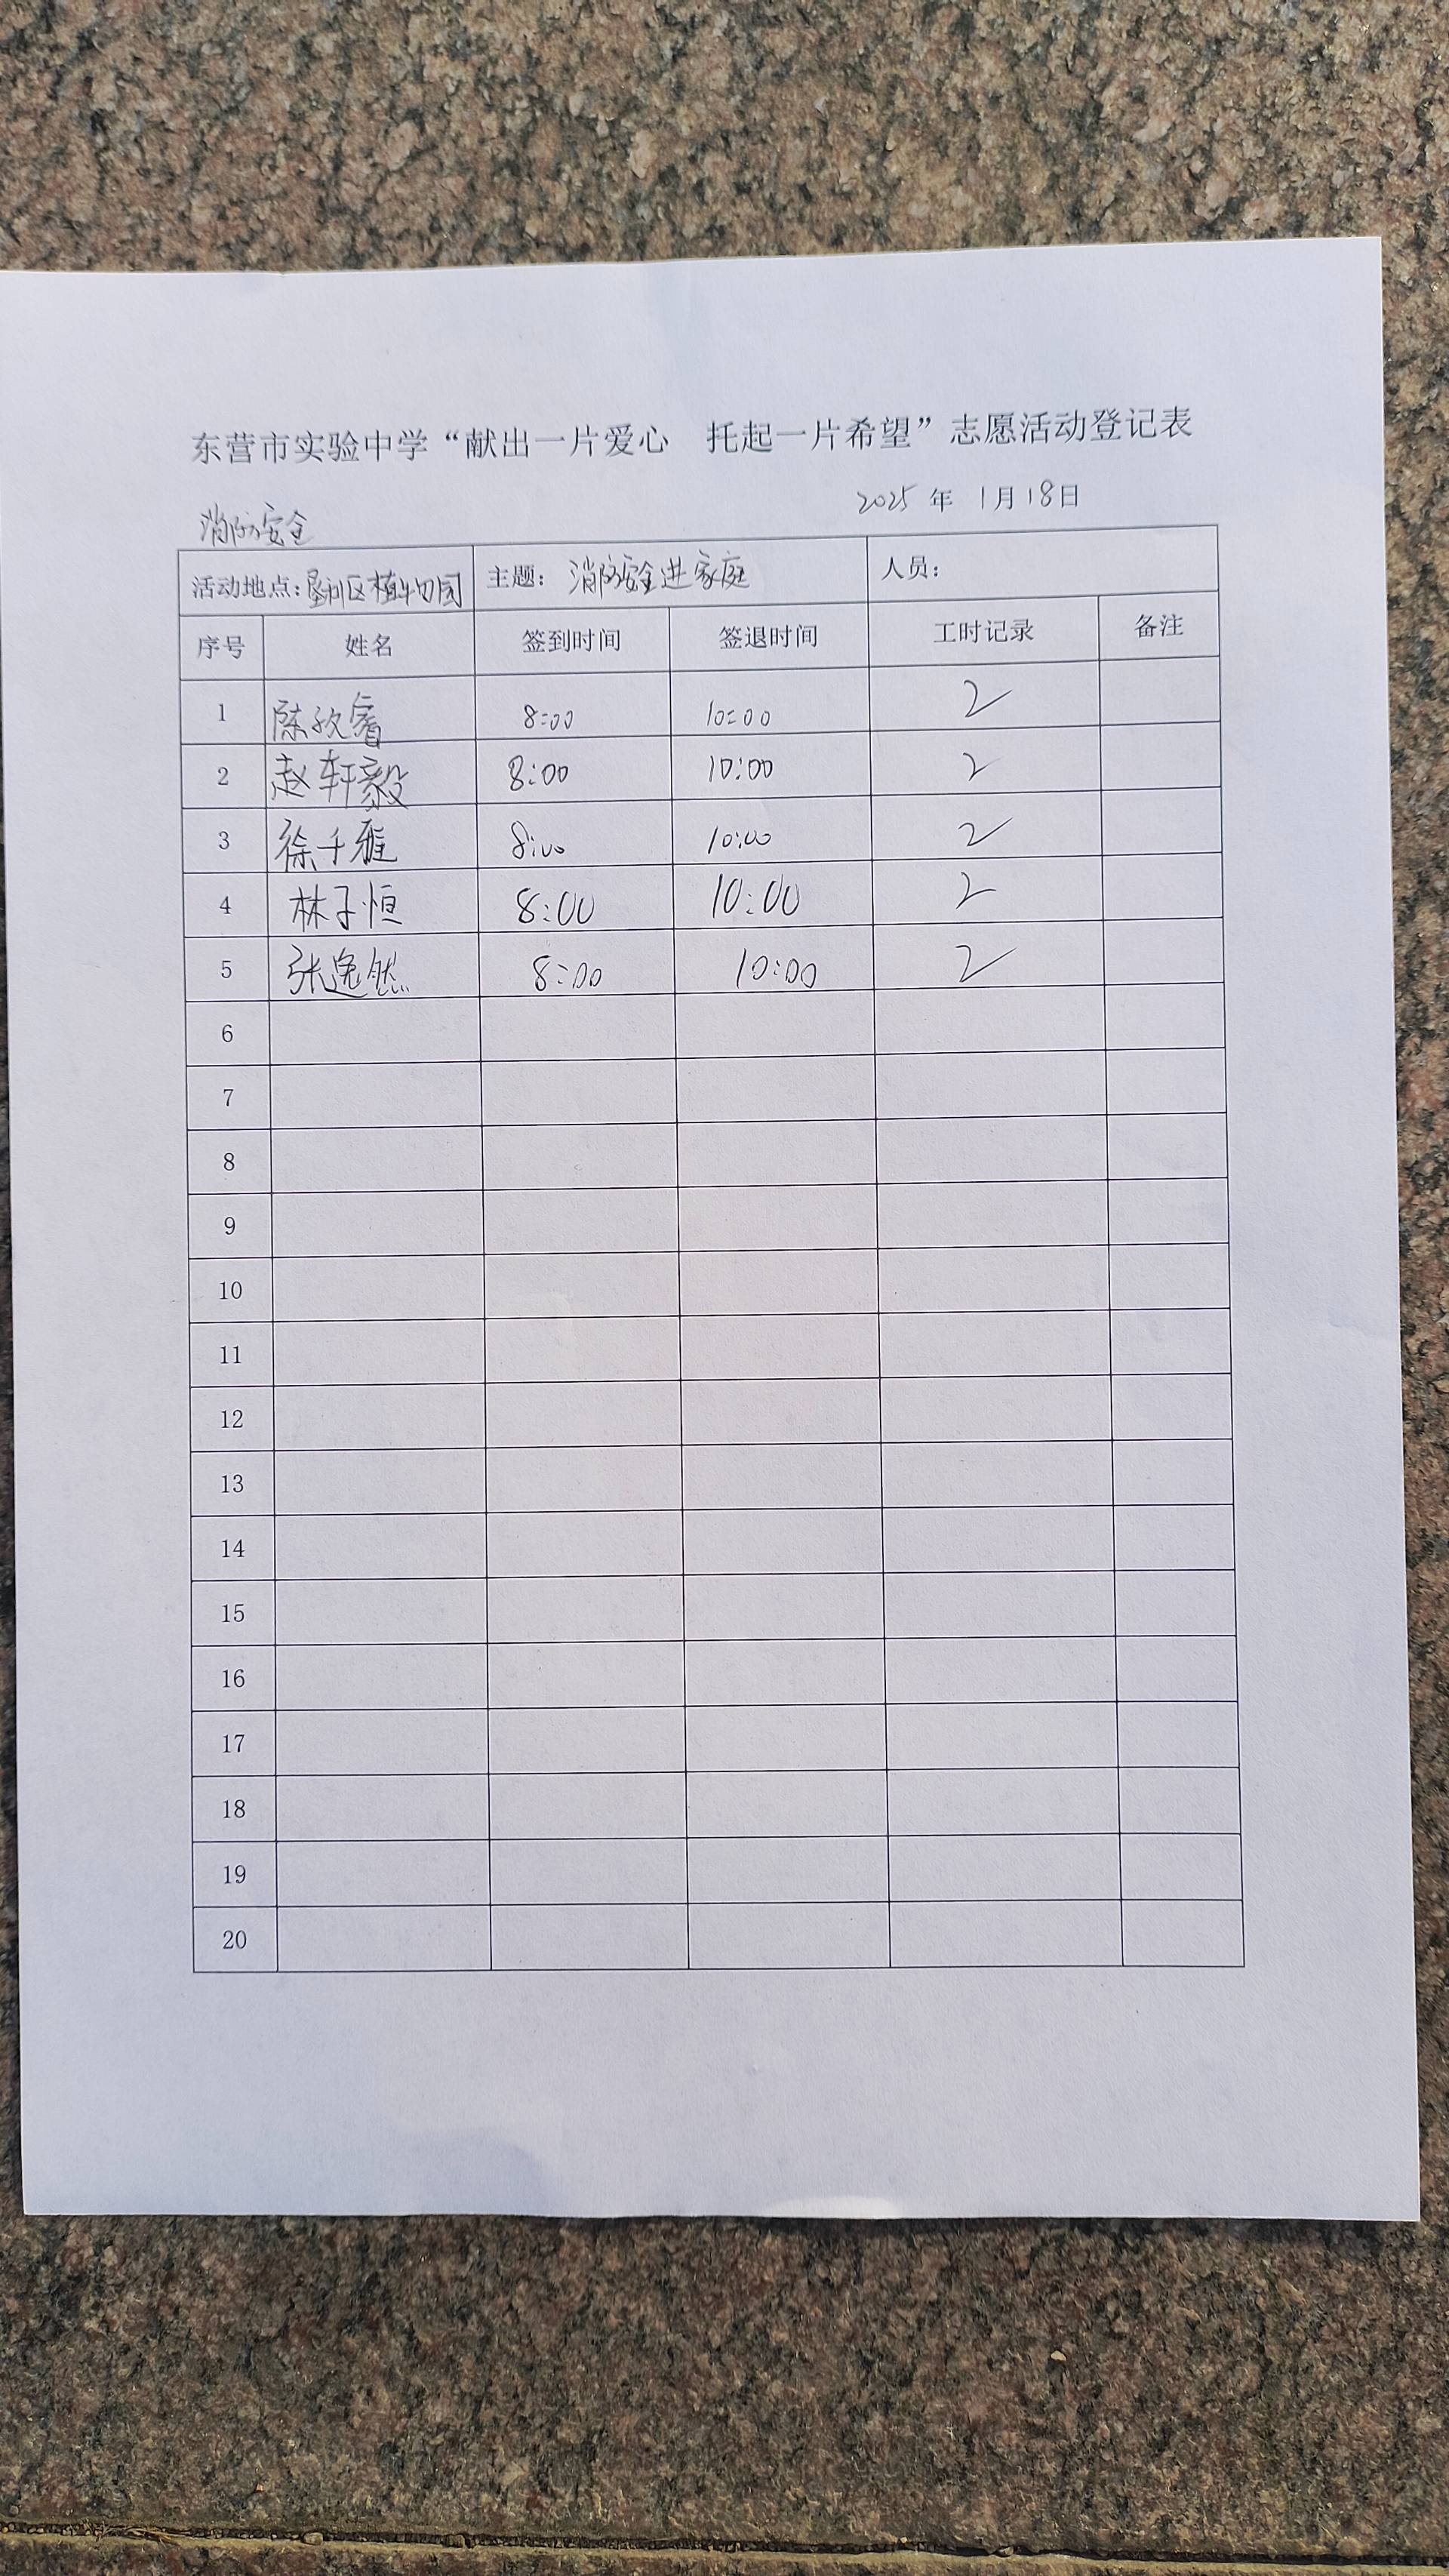 东营市实验中学“献出一片爱心 托起一片希望”志愿活动登记表
2025 年 1月18日
消防安全
活动地点:垦利区植物园 主题: 消防安全进家庭 人员:
序号 姓名 签到时间 签退时间 工时记录 备注
1 陈欣睿 8:00 10:00 2
2 赵轩毅 8:00 10:00 2
3 徐千雅 8:00 10:00 2
4 林子恒 8:00 10:00 2
5 张逸然 8:00 10:00 2
6
7
8
9
10
11
12
13
14
15
16
17
18
19
20